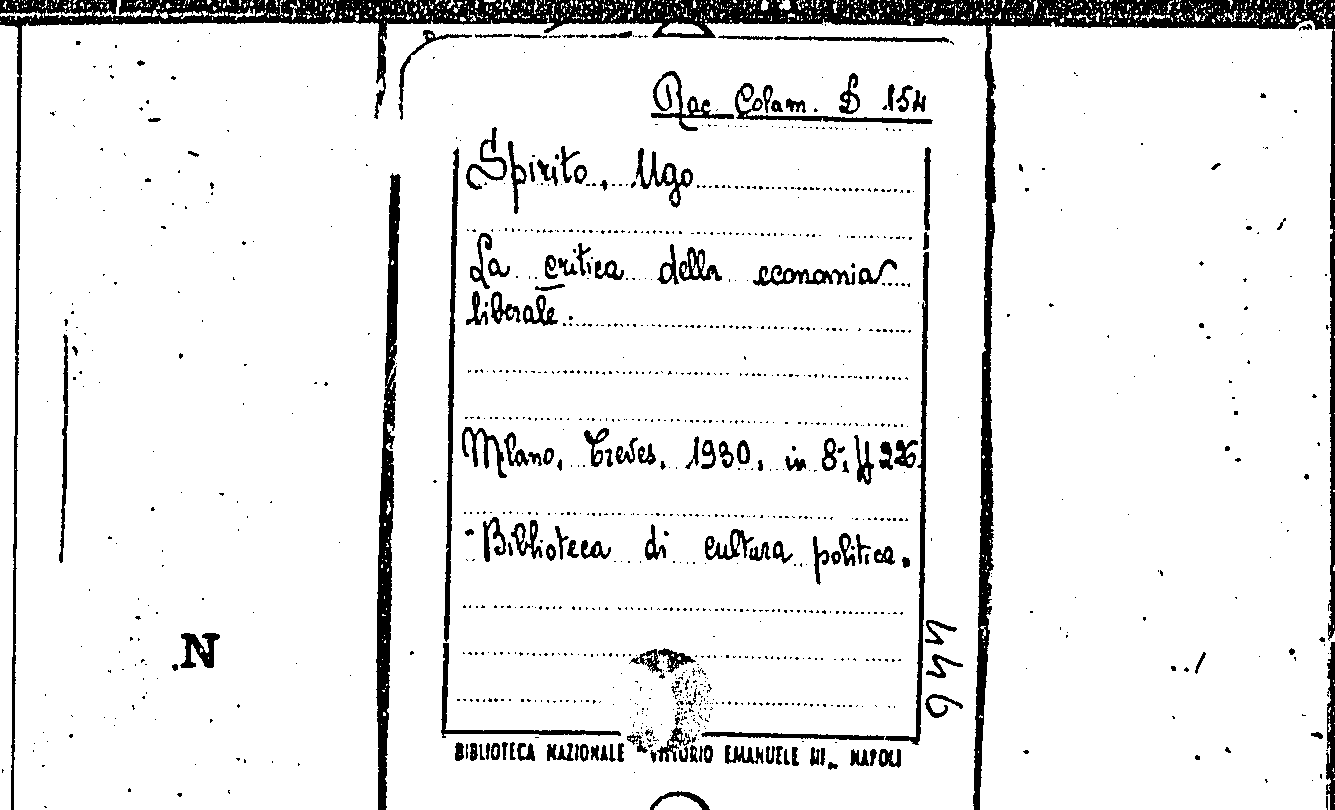 Rac. Colam. B 154
Spirito, Ugo
La critica della economia
liberale.
Milano, Treves, 1930, in 8°, pp 226.
- Biblioteca di cultura politica.
944
.N
BIBLIOTECA NAZIONALE VITTORIO EMANUELE III - NAPOLI